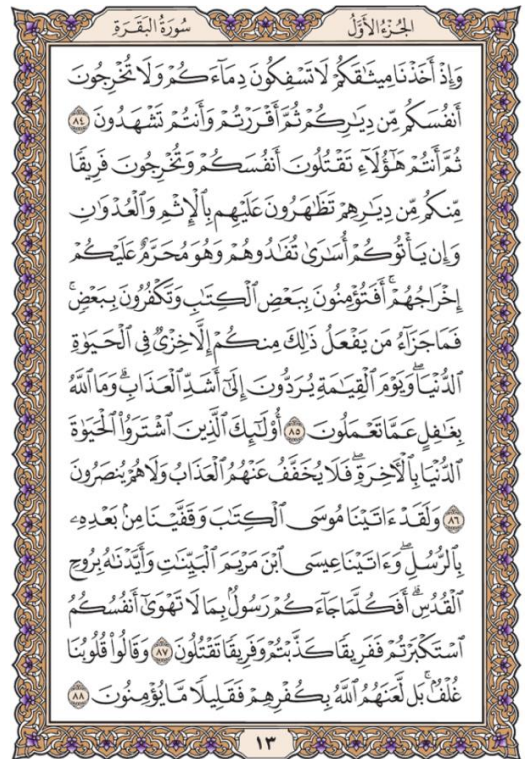 الجُزْءُ الأَوَّلُ
سُورَةُ البَقَرَةِ
وَإِذْ أَخَذْنَا مِيثَٰقَكُمْ لَا تَسْفِكُونَ دِمَآءَكُمْ وَلَا تُخْرِجُونَ
أَنفُسَكُم مِّن دِيَٰرِكُمْ ثُمَّ أَقْرَرْتُمْ وَأَنتُمْ تَشْهَدُونَ ٨٤
ثُمَّ أَنتُمْ هَٰٓؤُلَآءِ تَقْتُلُونَ أَنفُسَكُمْ وَتُخْرِجُونَ فَرِيقًا
مِّنكُم مِّن دِيَٰرِهِمْ تَظَٰهَرُونَ عَلَيْهِم بِٱلْإِثْمِ وَٱلْعُدْوَٰنِ
وَإِن يَأْتُوكُمْ أُسَٰرَىٰ تُفَٰدُوهُمْ وَهُوَ مُحَرَّمٌ عَلَيْكُمْ
إِخْرَاجُهُمْ ۚ أَفَتُؤْمِنُونَ بِبَعْضِ ٱلْكِتَٰبِ وَتَكْفُرُونَ بِبَعْضٍ ۚ
فَمَا جَزَآءُ مَن يَفْعَلُ ذَٰلِكَ مِنكُمْ إِلَّا خِزْىٌ فِى ٱلْحَيَوٰةِ
ٱلدُّنْيَا ۖ وَيَوْمَ ٱلْقِيَٰمَةِ يُرَدُّونَ إِلَىٰٓ أَشَدِّ ٱلْعَذَابِ ۗ وَمَا ٱللَّهُ
بِغَٰفِلٍ عَمَّا تَعْمَلُونَ ٨٥ أُو۟لَٰٓئِكَ ٱلَّذِينَ ٱشْتَرَوُا۟ ٱلْحَيَوٰةَ
ٱلدُّنْيَا بِٱلْءَاخِرَةِ ۖ فَلَا يُخَفَّفُ عَنْهُمُ ٱلْعَذَابُ وَلَا هُمْ يُنصَرُونَ
٨٦ وَلَقَدْ ءَاتَيْنَا مُوسَى ٱلْكِتَٰبَ وَقَفَّيْنَا مِنۢ بَعْدِهِۦ
بِٱلرُّسُلِ ۖ وَءَاتَيْنَا عِيسَى ٱبْنَ مَرْيَمَ ٱلْبَيِّنَٰتِ وَأَيَّدْنَٰهُ بِرُوحِ
ٱلْقُدُسِ ۗ أَفَكُلَّمَا جَآءَكُمْ رَسُولٌۢ بِمَا لَا تَهْوَىٰٓ أَنفُسُكُمُ
ٱسْتَكْبَرْتُمْ فَفَرِيقًا كَذَّبْتُمْ وَفَرِيقًا تَقْتُلُونَ ٨٧ وَقَالُوا۟ قُلُوبُنَا
غُلْفٌۢ ۚ بَل لَّعَنَهُمُ ٱللَّهُ بِكُفْرِهِمْ فَقَلِيلًا مَّا يُؤْمِنُونَ ٨٨
١٣